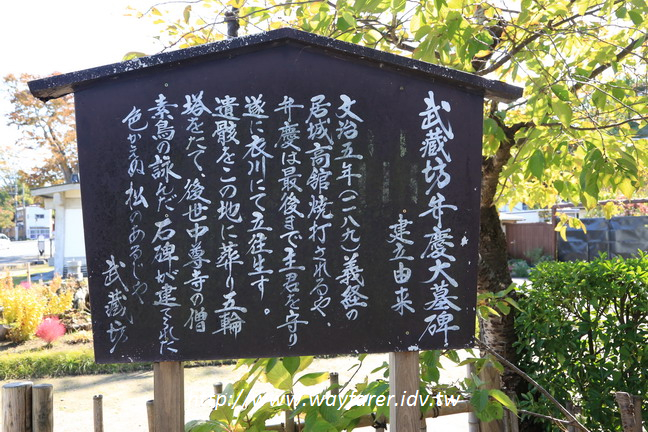 武蔵坊弁慶大墓碑
建立由来
文治五年(一一八九)義経の
居城高館焼打されるや、
弁慶は最後まで主君を守り
遂に衣川にて立往生す。
遺骸をこの地に葬り五輪
塔をたて、後世中尊寺の僧
素鳥の詠んだ石碑が建てられた
色かえぬ松のあるじや
武蔵坊
www.wayfarer.idv.tw